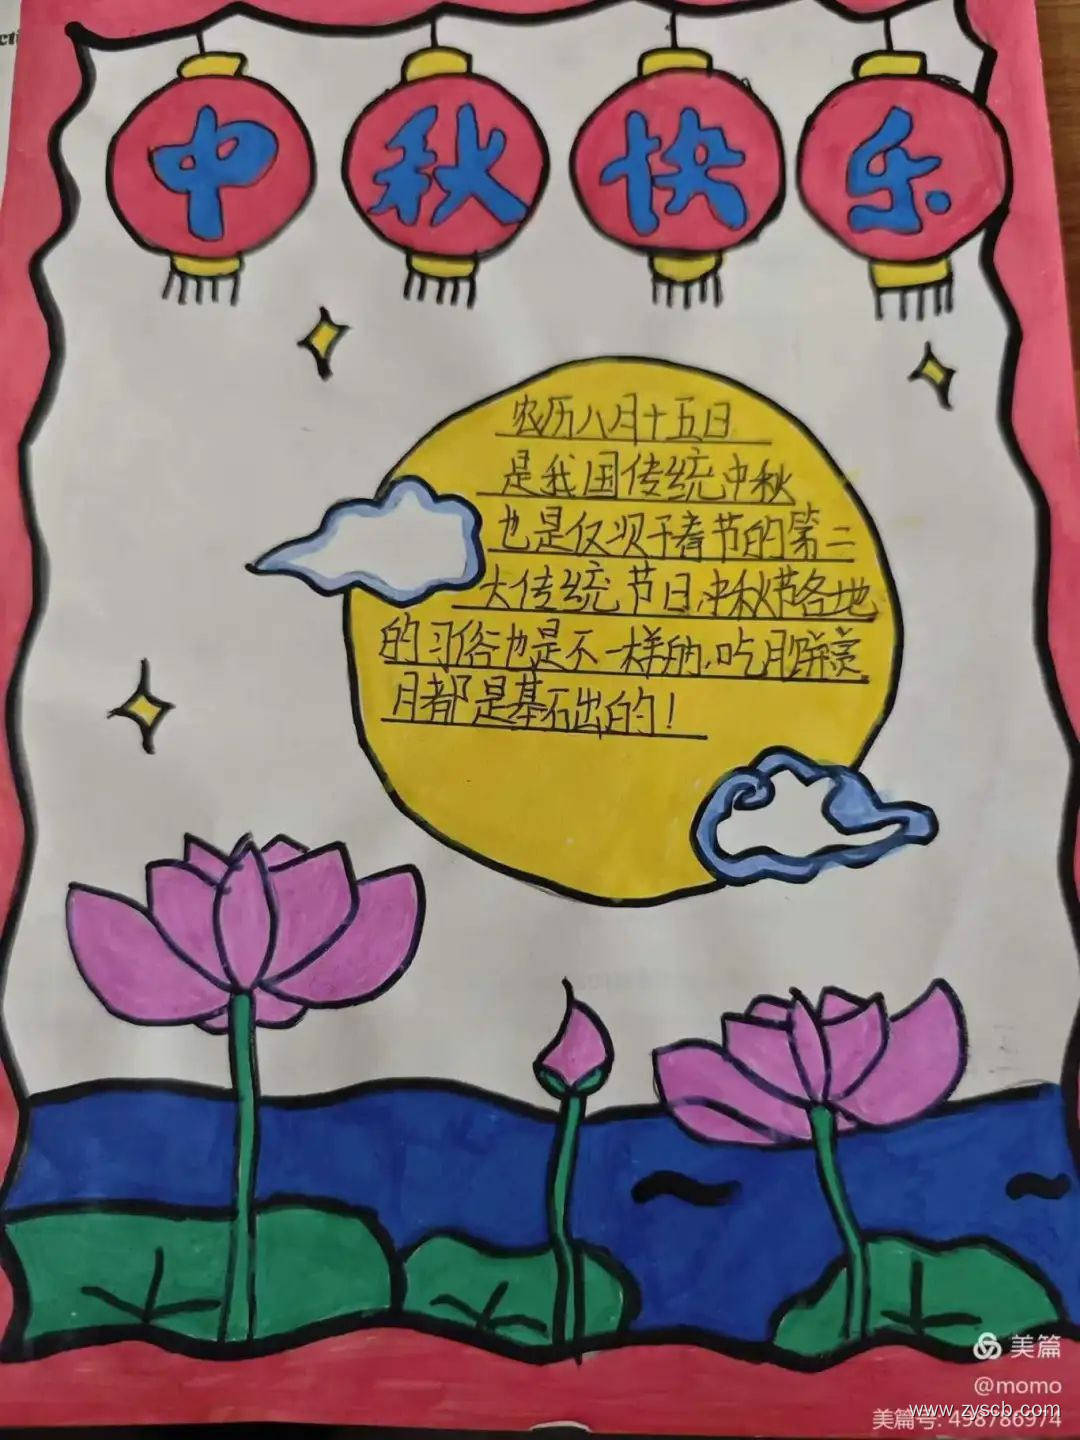 中秋快乐
农历八月十五日
是我国传统中秋
也是仅次于春节的第二
大传统节日,中秋节各地
的习俗也是不一样的,吃月饼赏
月都是基石出的!
美篇
@momo
www.zyscb.com
美篇号: 498786974